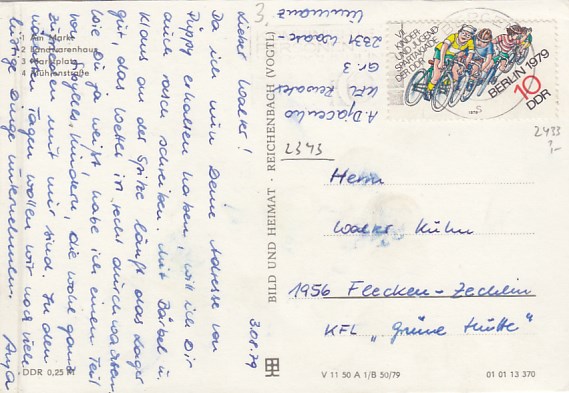 3.08.79
Lieber Walter!
Da ich nun Deine Adresse von
Püppi erhalten haben, will ich Dir
auch auch schreiben. Mit Bärbel u.
Klaus an der Spitze läuft das Lager
gut, das Wetter ist recht durchwachsen.
Wie Du ja weißt, habe ich einen Teil
von Kindern, die wohl ganz
zufrieden mit mir sind. In den
Tagen wollen wir noch viele
lustige Dinge unternehmen.
Anja
1 Am Markt
2 Landwarenhaus
3 Marktplatz
4 Mühlenstraße
DDR 0,25 M
BILD UND HEIMAT · REICHENBACH (VOGTL)
V 11 50 A 1/B 50/79
01 01 13 370
3.
2331
Gr. 3
KFL
2343
2433
VII.
KINDER-
UND JUGEND-
SPARTAKIADE
DER DDR
BERLIN 1979
10
DDR
Herrn
Walter Kühn
1956 Flecken-Zechlin
KFL "Grüne Hütte"